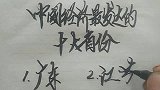 中国经济最发达的
十大省份
1.广东 2.江苏